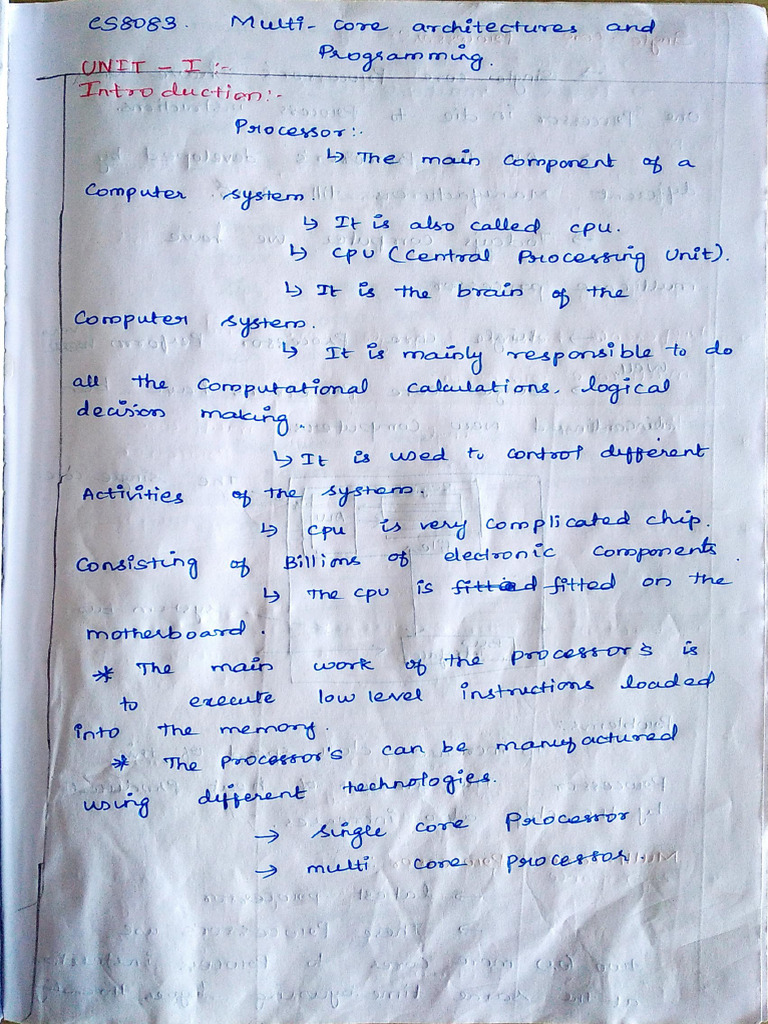 CS8083. Multi-core architectures and
Programming.
UNIT - I :-
Introduction:-
Processor:-
↳ The main component of a
computer system.
↳ It is also called cpu.
↳ cpu (Central Processing Unit).
↳ It is the brain of the
computer system.
↳ It is mainly responsible to do
all the computational calculations, logical
decision making.
↳ It is used to control different
Activities of the system.
↳ cpu is very complicated chip.
consisting of Billions of electronic components.
↳ The cpu is fitted fitted on the
motherboard.
* The main work of the processor's is
to execute low level instructions loaded
into the memory.
* The processor's can be manufactured
using different technologies.
→ single core Processor
→ multi core processor.